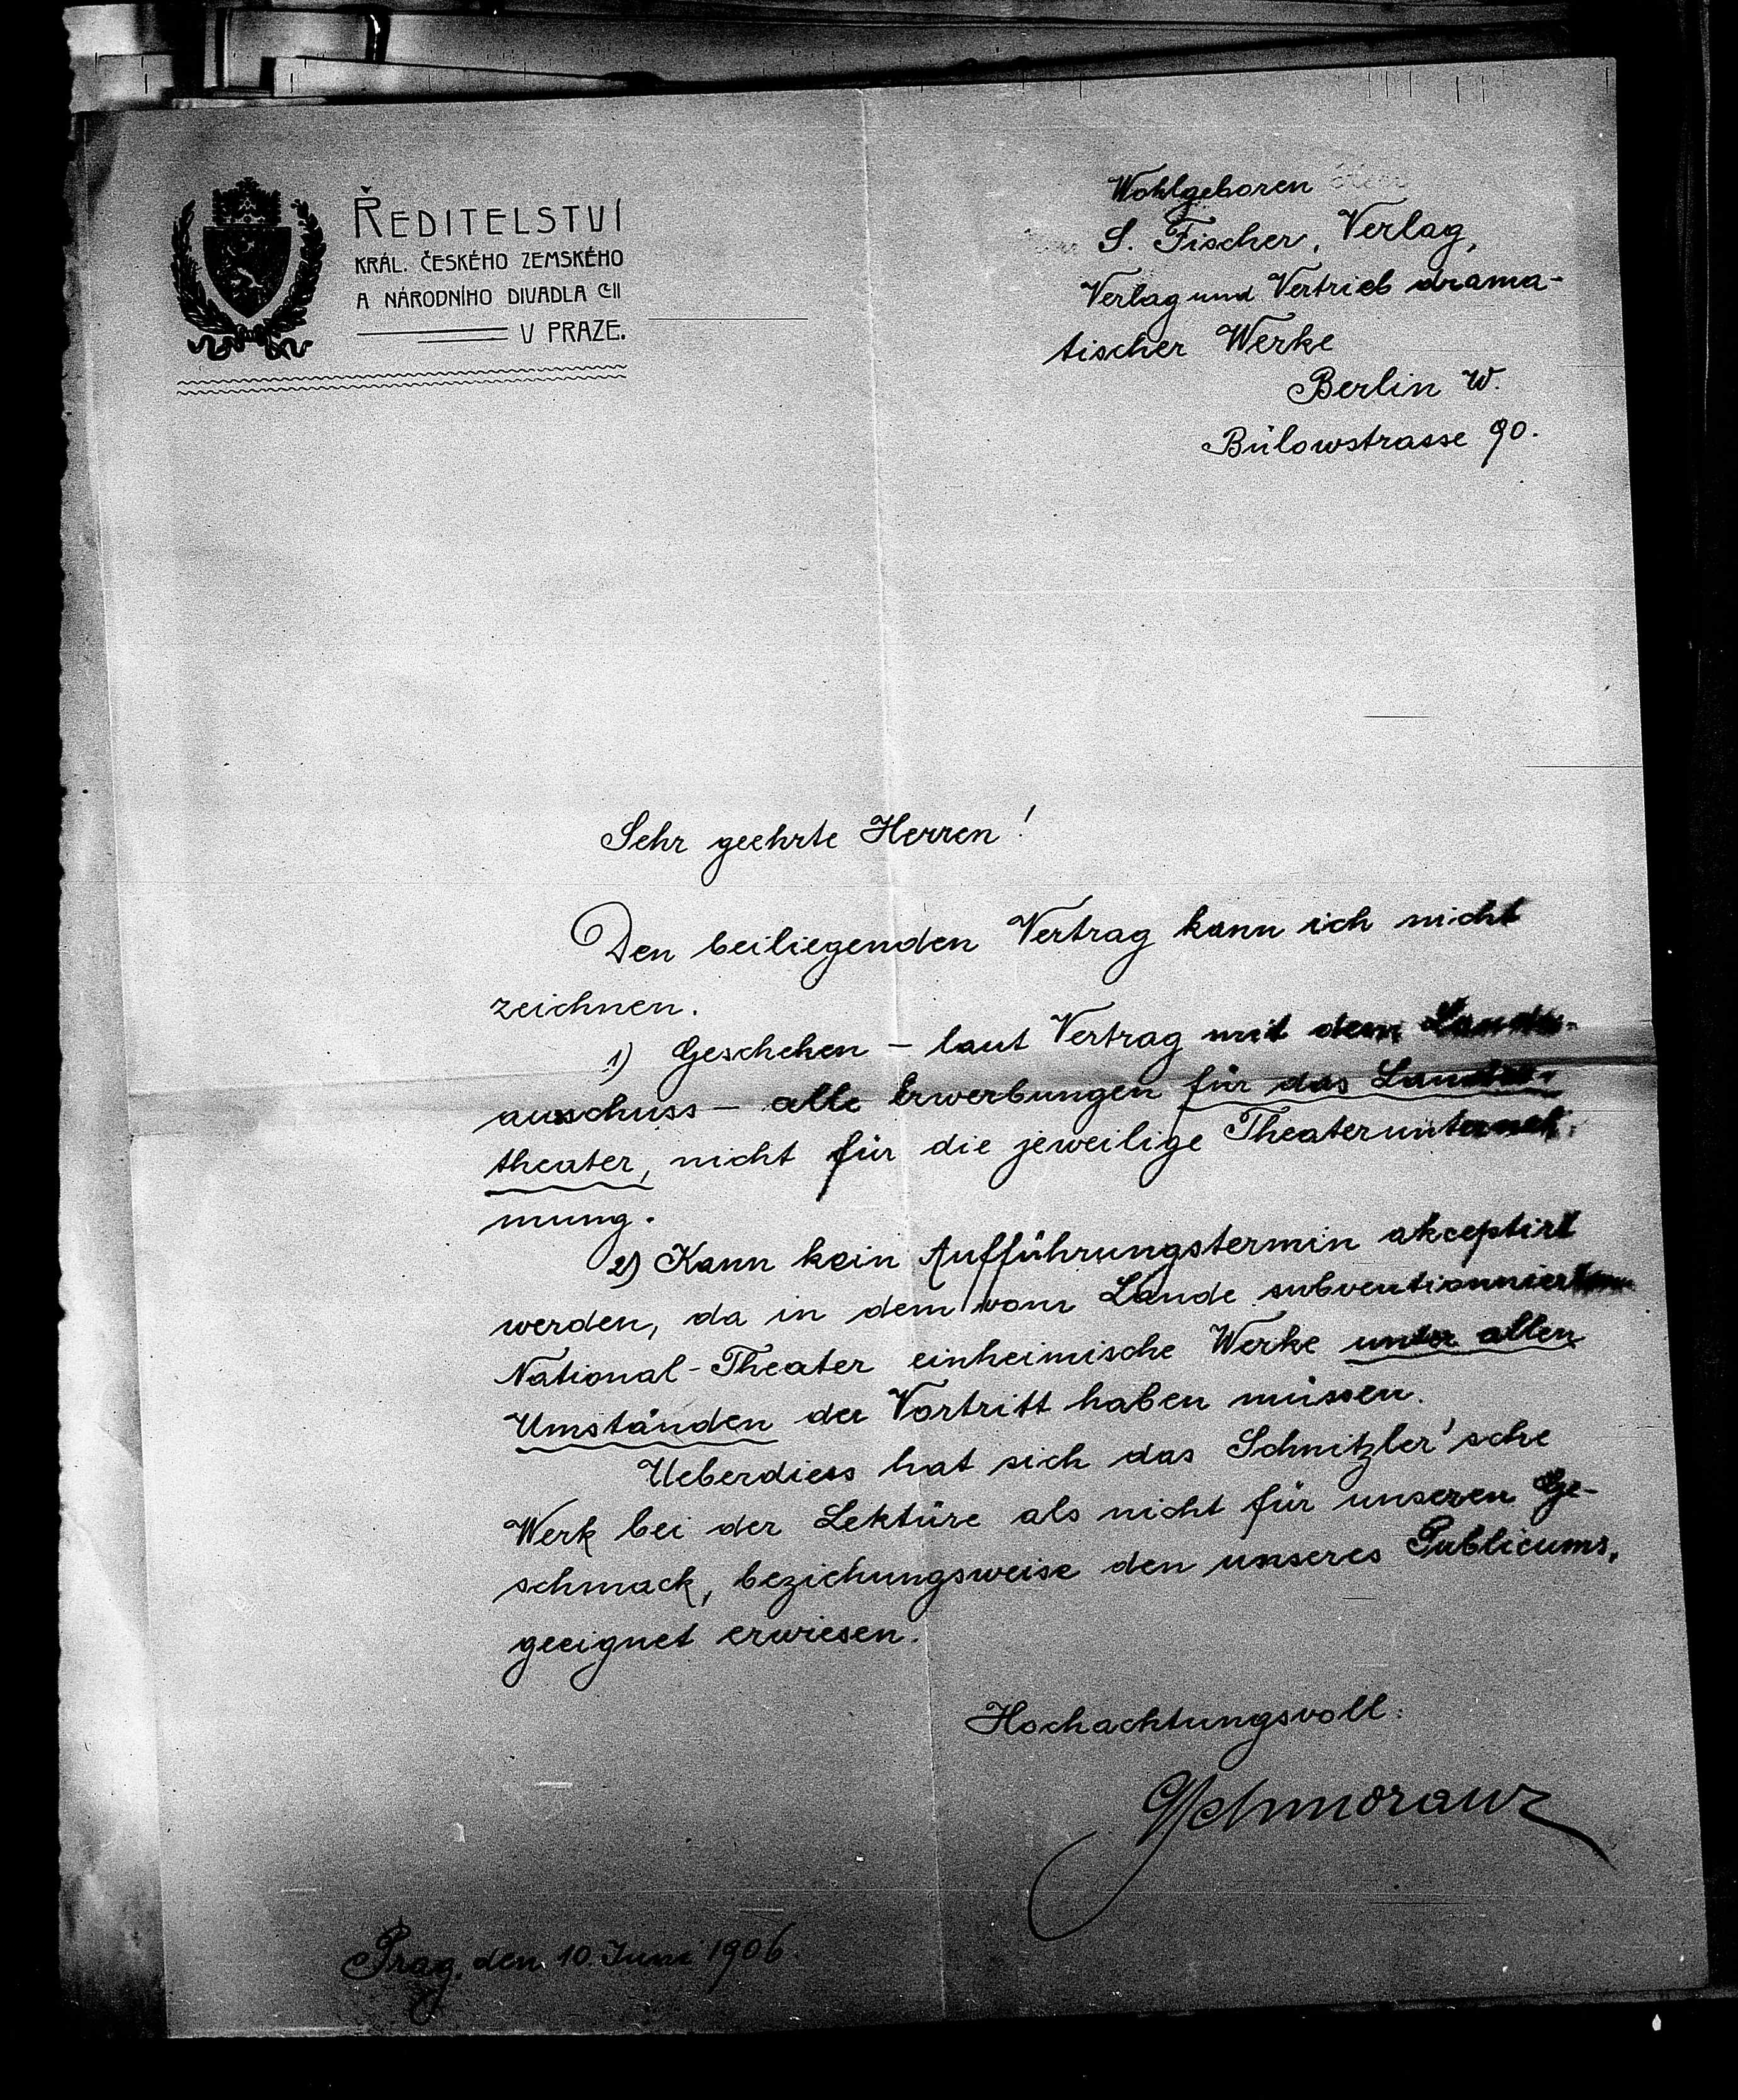 ŘEDITELSTVÍ
KRÁL. ČESKÉHO ZEMSKÉHO
A NÁRODNÍHO DIVADLA
V PRAZE.
Wohlgeboren
S. Fischer, Verlag,
Verlag und Vertrieb drama-
tischer Werke
Berlin W.
Bülowstrasse 90.
Sehr geehrte Herren!
Den beiliegenden Vertrag kann ich nicht
zeichnen.
1) Geschehen – laut Vertrag mit dem Landes-
ausschuss – alle Erwerbungen für das Landes-
theater, nicht für die jeweilige Theaterunterneh-
mung.
2) Kann kein Aufführungstermin akceptirt
werden, da in dem vom Lande subventionnierten
National-Theater einheimische Werke unter allen
Umständen der Vortritt haben müssen.
Ueberdiess hat sich das Schnitzler'sche
Werk bei der Lektüre als nicht für unseren Ge-
schmack, beziehungsweise den unseres Publicums,
geeignet erwiesen.
Hochachtungsvoll:
GSchmoranz
Prag, den 10. Juni 1906.